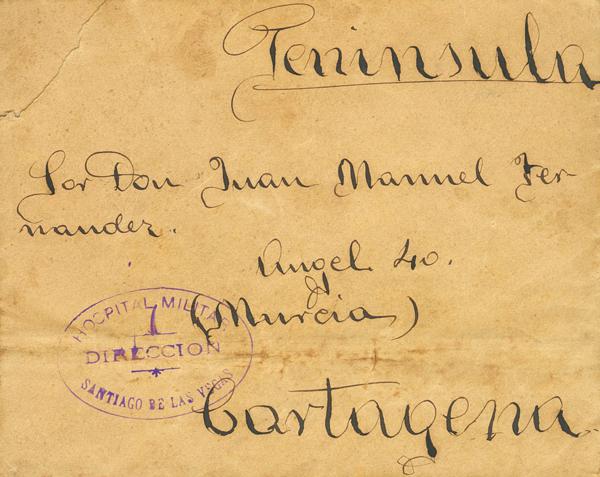 Península
Sor Don Juan Manuel Fer-
nandez.
Angel 40.
(Murcia)
HOSPITAL MILITAR
DIRECCION
SANTIAGO DE LAS VEGAS
Cartagena